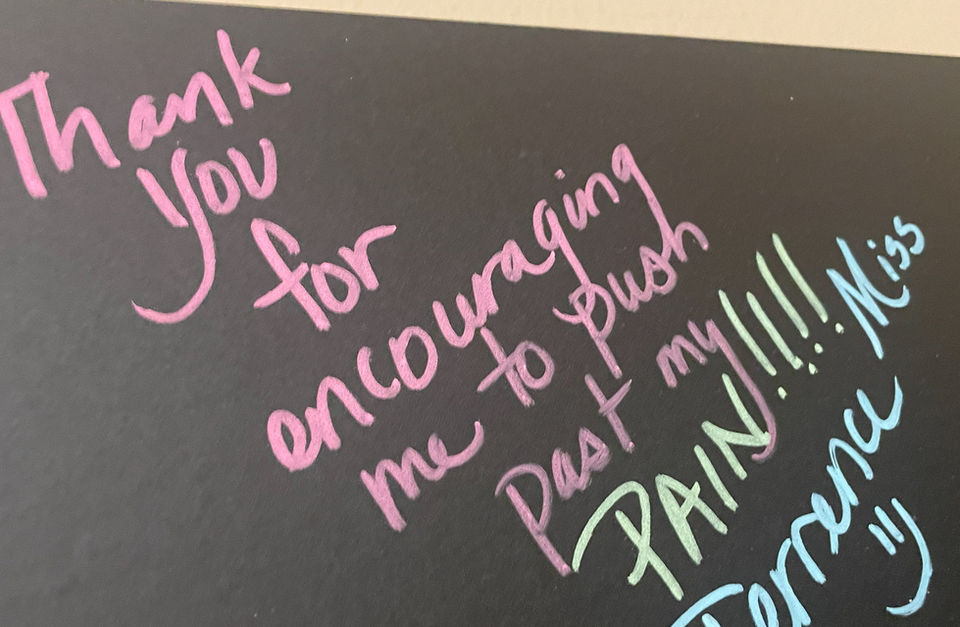 Thank
you
for
encouraging
me to push
past my
PAIN!!!!! Miss
Terrence